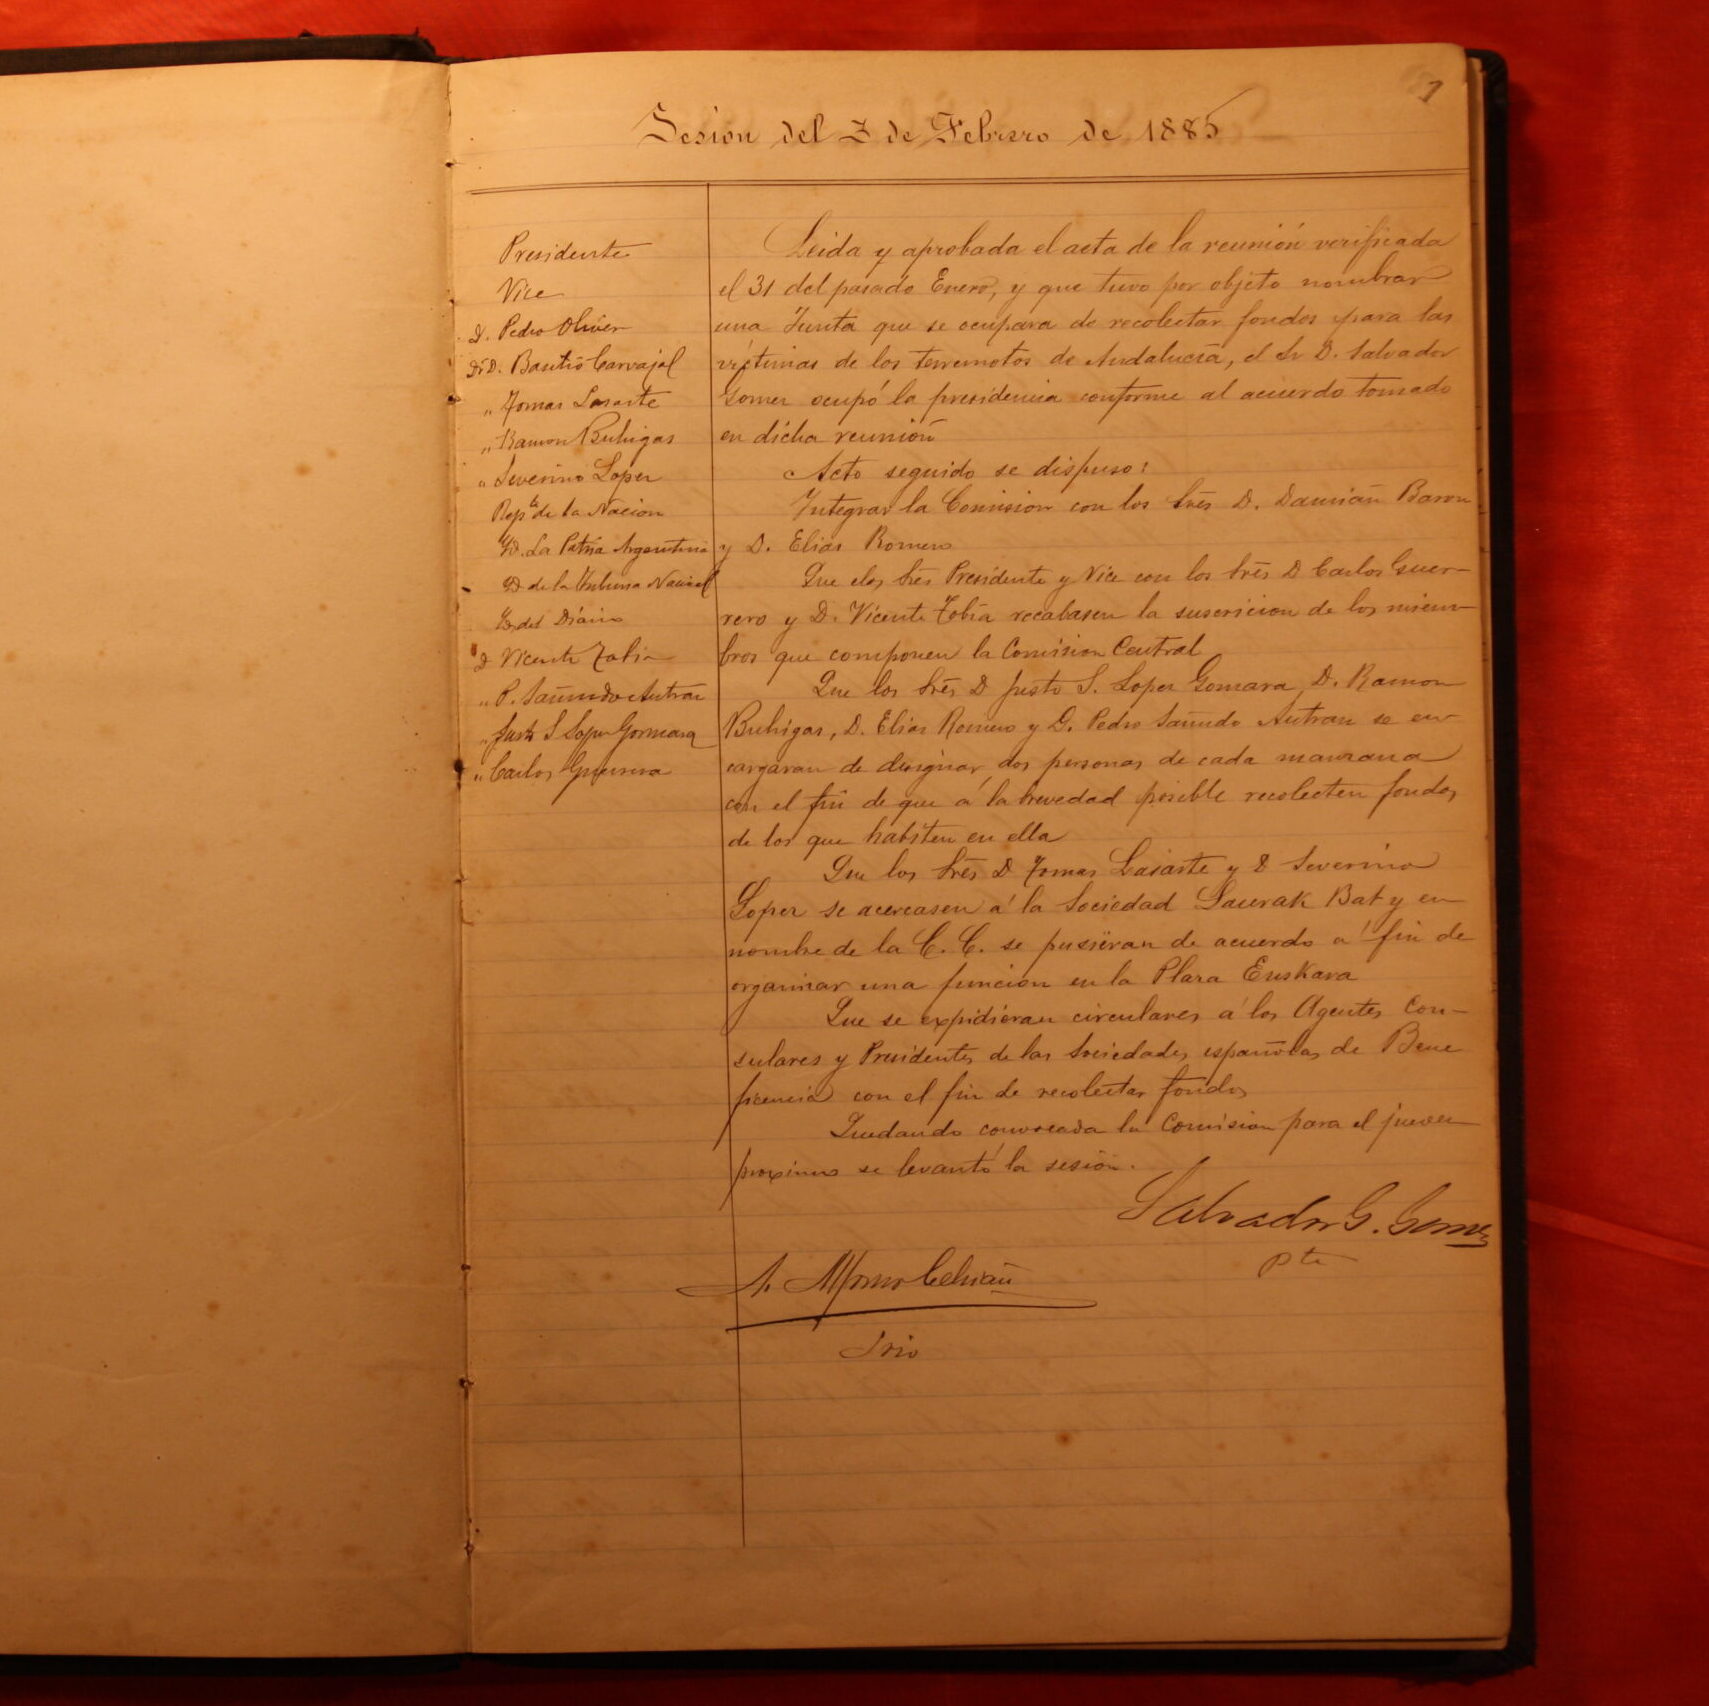 1
Sesion del 3 de Febrero de 1885
Presidente
Vice
D. Pedro Oliver
Dr D. Basilio Carvajal
" Tomas Lasarte
" Ramon Buhigas
" Severino Lopez
Rep.te de la Nacion
Id. La Patria Argentina
Id de la Tribuna Nacional
Id del Diario
D Vicente Tobia
" P. Sañudo Autran
" Justo S Lopez Gomara
" Carlos Guerrero
Leida y aprobada el acta de la reunión verificada
el 31 del pasado Enero, y que tuvo por objeto nombrar
una Junta que se ocupara de recolectar fondos para las
víctimas de los terremotos de Andalucía, el Sr D. Salvador
Gomez ocupó la presidencia conforme al acuerdo tomado
en dicha reunión
Acto seguido se dispuso:
Integrar la Comision con los Sres D. Damián Baron
y D. Elias Romero
Que los Sres Presidente y Vice con los Sres D Carlos Guer-
rero y D. Vicente Tobía recabasen la suscricion de los miem-
bros que componen la Comision Central
Que los Sres D Justo S. Lopez Gomara, D. Ramon
Buhigas, D. Elias Romero y D. Pedro Sañudo Autran se en-
cargaran de designar dos personas de cada manzana
con el fin de que á la brevedad posible recolecten fondos
de los que habiten en ella
Que los Sres D Tomas Lasarte y D Severino
Lopez se acercasen á la Sociedad Laurak Bat y en
nombre de la C. C. se pusieran de acuerdo á fin de
organizar una funcion en la Plaza Euskara
Que se expidieran circulares á los Agentes Con-
sulares y Presidentes de las Sociedades españolas de Bene
ficencia con el fin de recolectar fondos
Quedando convocada la Comision para el jueves
proximo se levantó la sesión.
Salvador G. Gomez
Pte
Srio